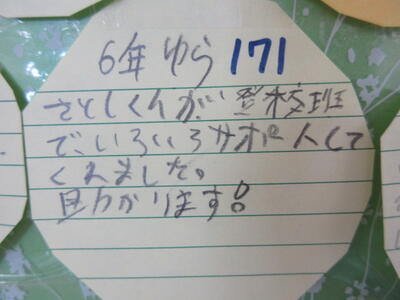 6年 ゆら 171
さとしくんが 登校班
で、いろいろサポートして
くれました。
助かります!